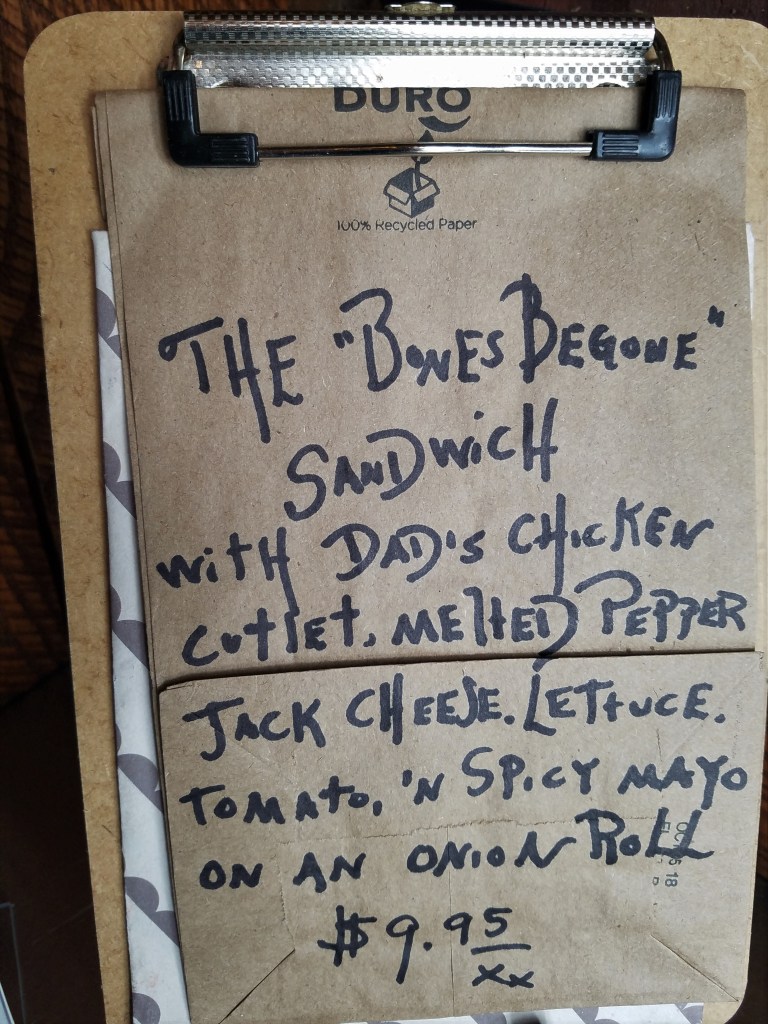 DURO
100% Recycled Paper
THE "BONES BEGONE"
SANDWICH
WITH DAD'S CHICKEN
CUTLET, MELTED PEPPER
JACK CHEESE. LETTUCE.
TOMATO, 'N SPICY MAYO
ON AN ONION ROLL
$9.95
xx